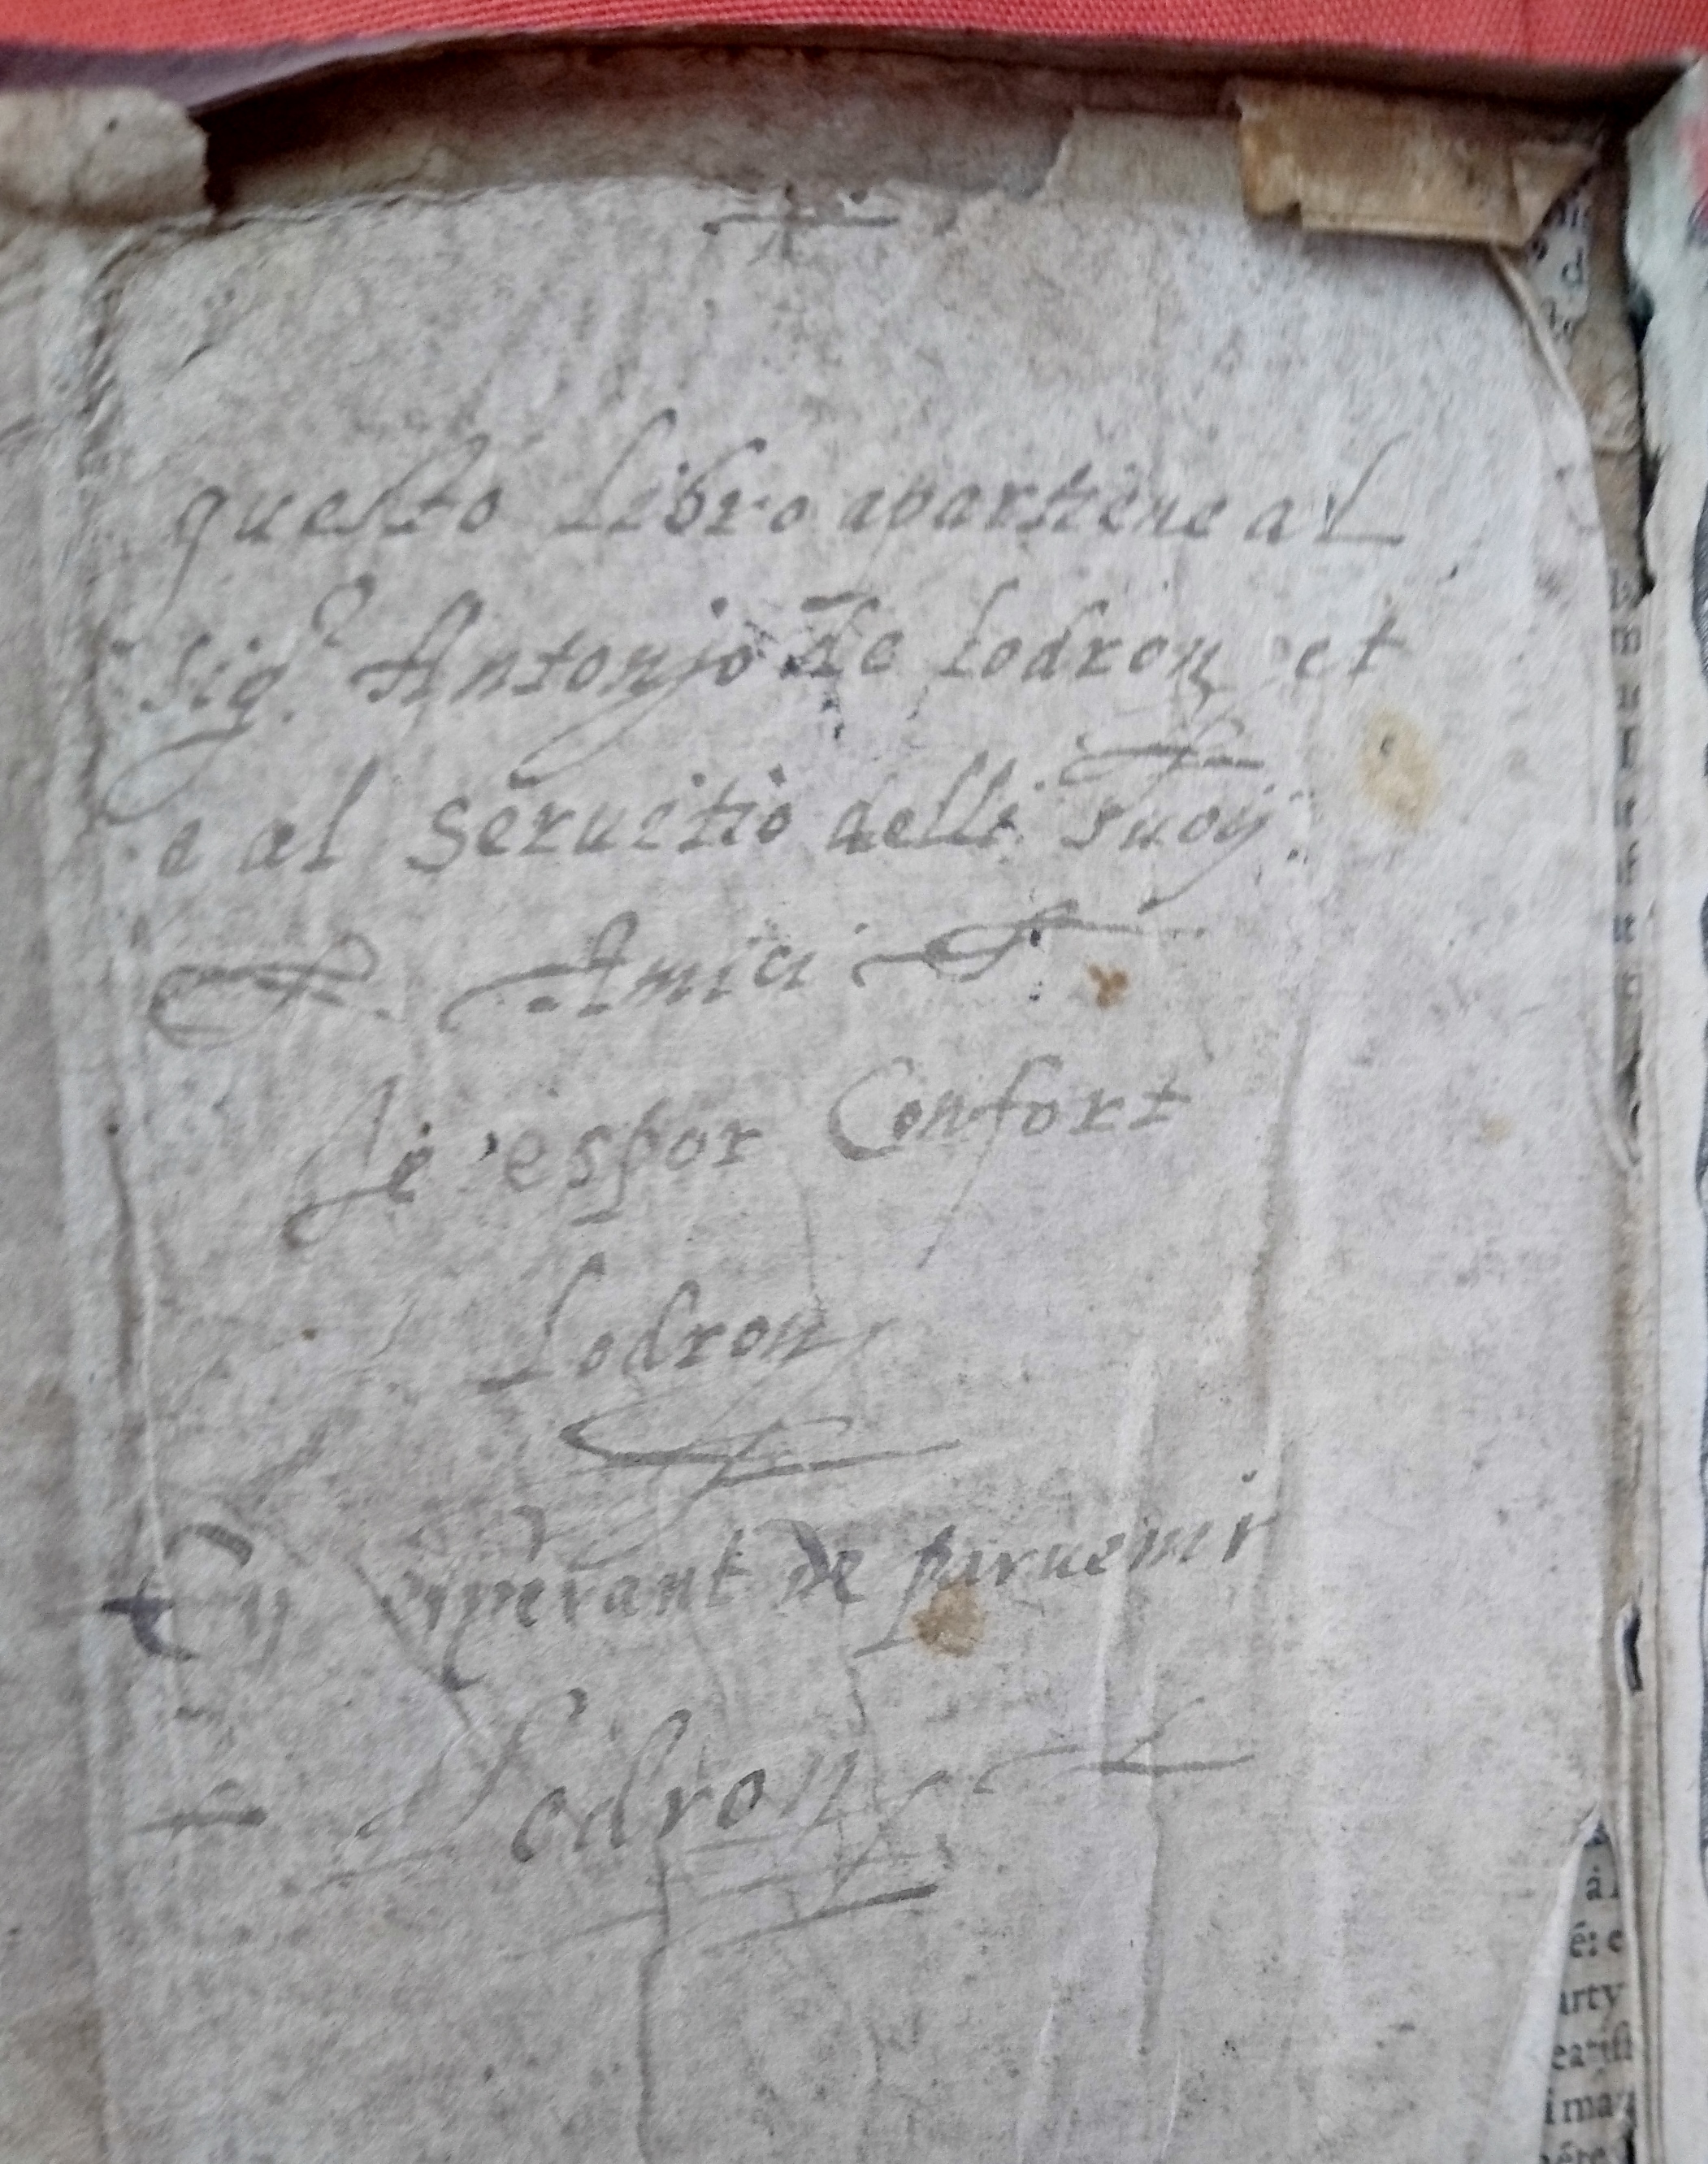 questo libro apartiene al
Sig.r Antonjo de Lodron et
e al seruitio delli suoij
Amici
espoir Confort
Lodron
esperant de paruenir
Lodron